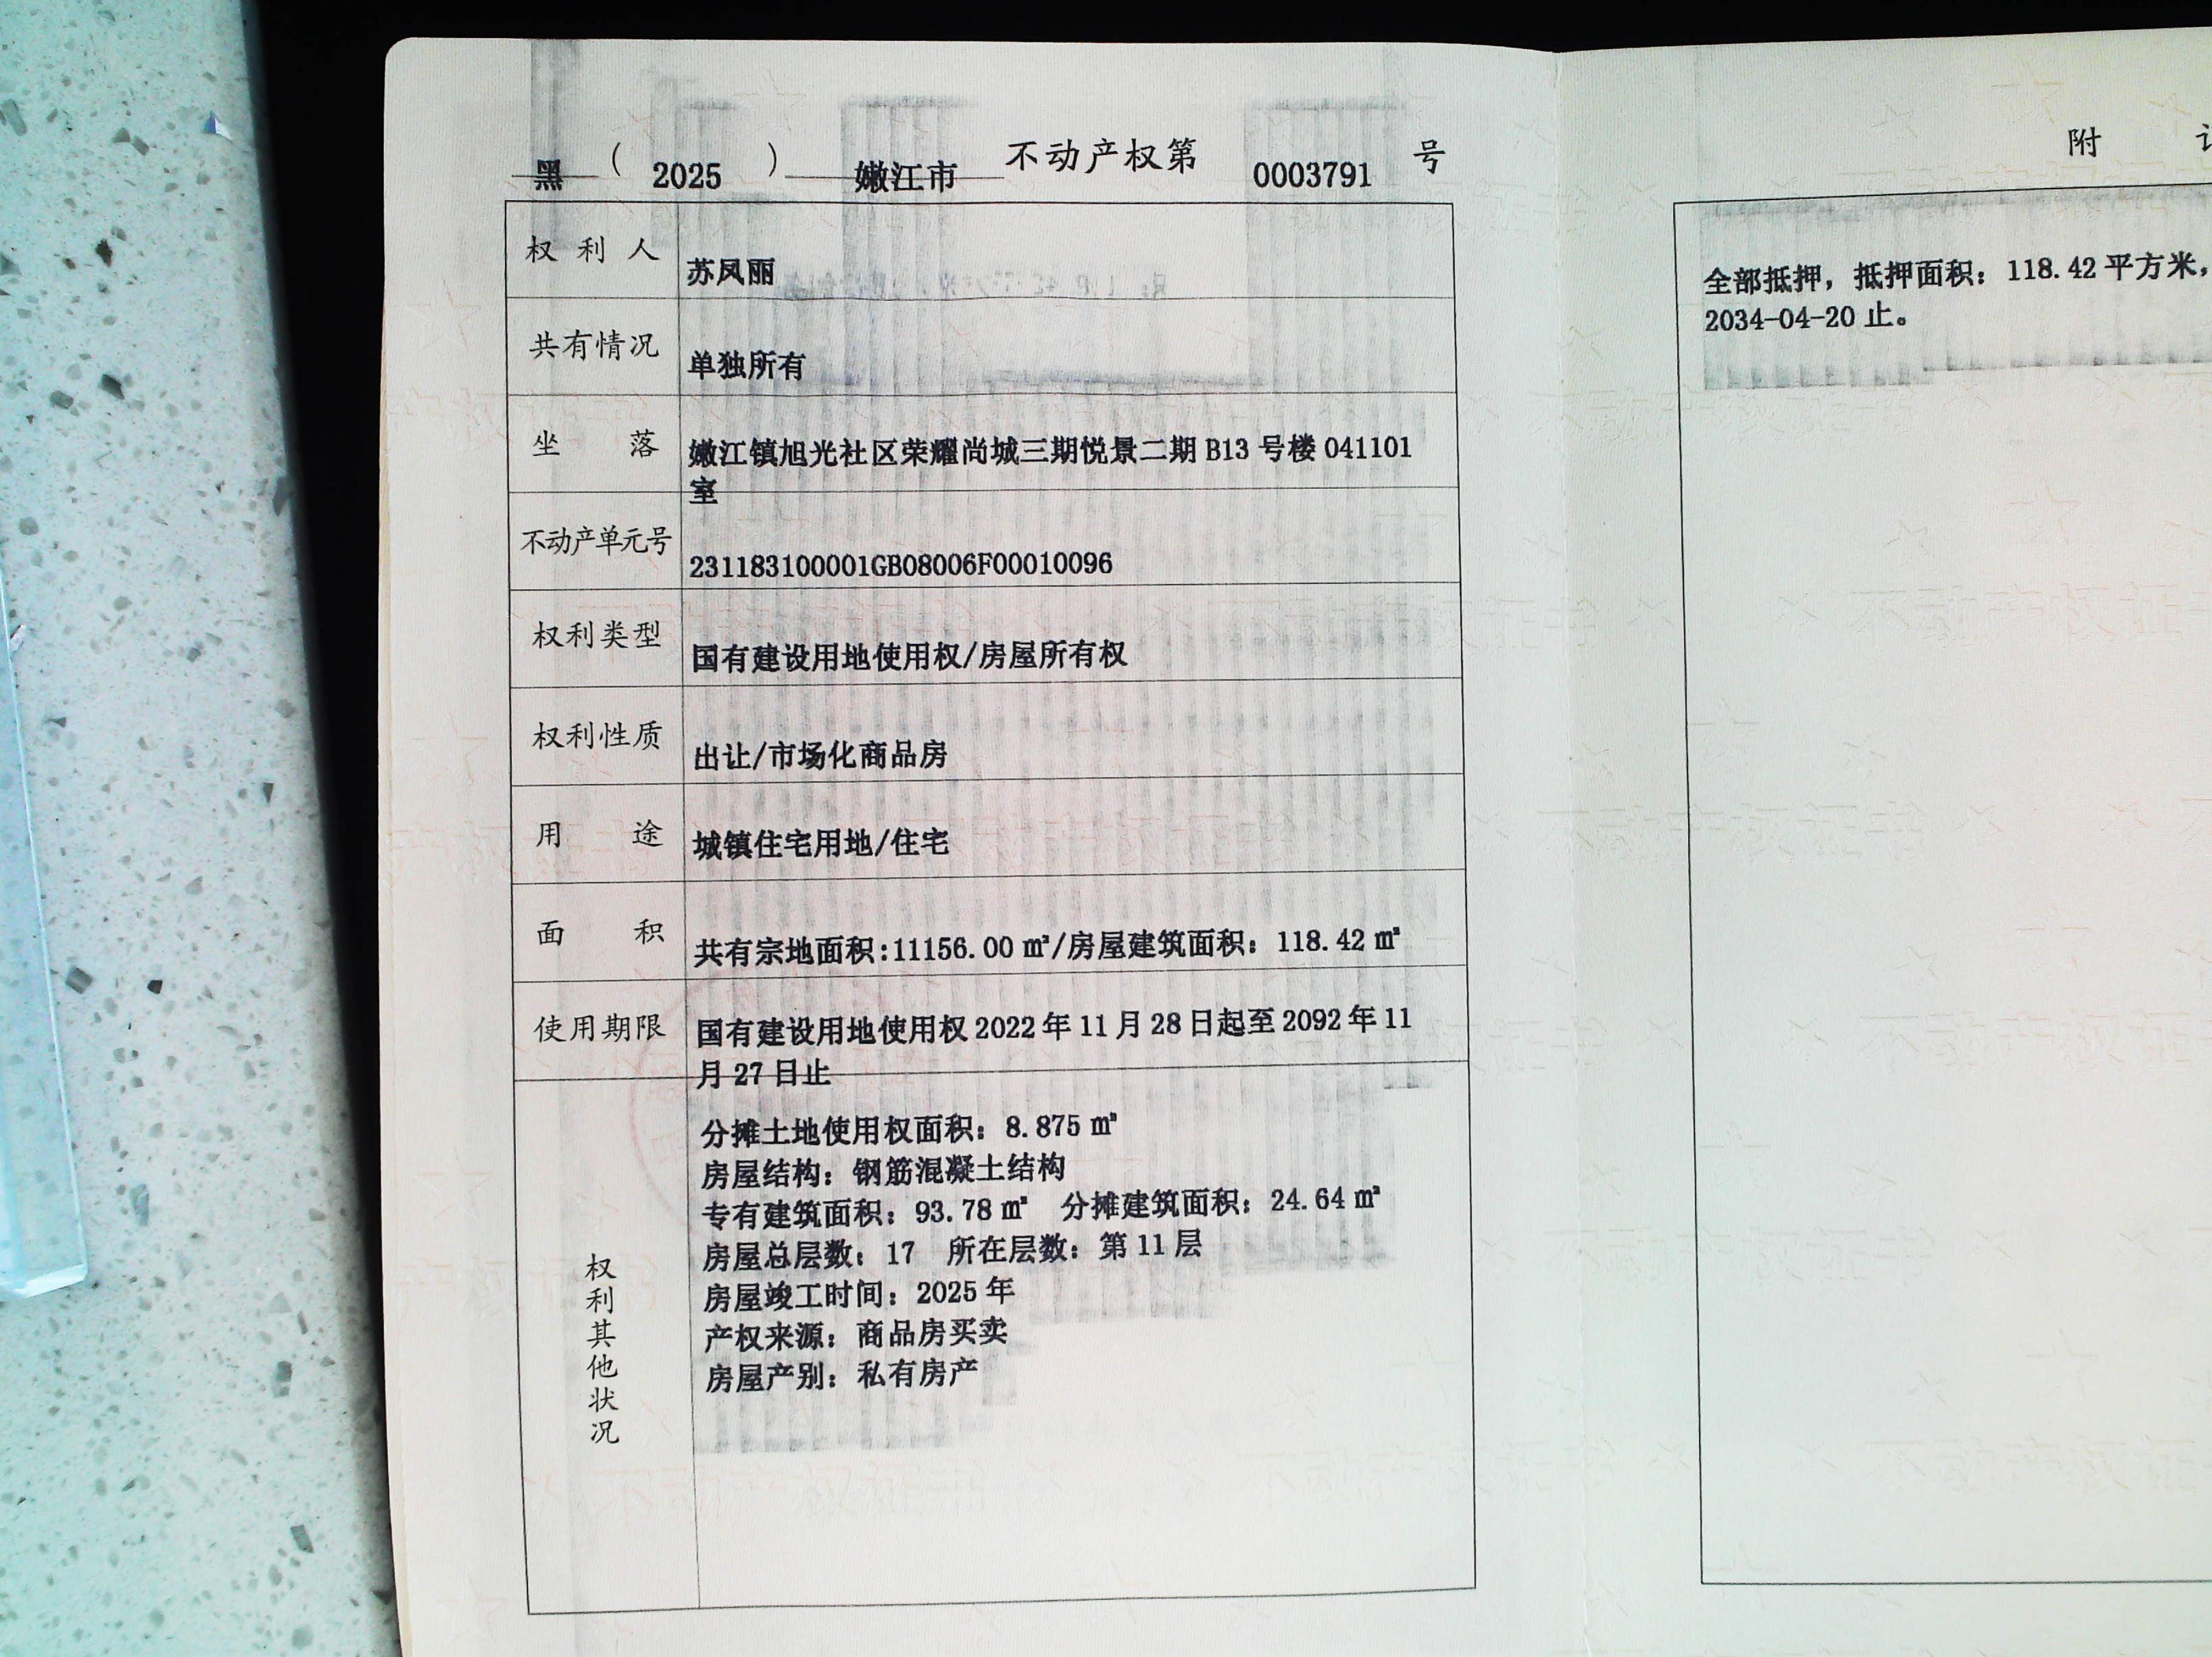 黑（2025）嫩江市不动产权第0003791号
权利人 苏凤丽
共有情况 单独所有
坐落 嫩江镇旭光社区荣耀尚城三期悦景二期 B13 号楼 041101
室
不动产单元号 231183100001GB08006F00010096
权利类型 国有建设用地使用权/房屋所有权
权利性质 出让/市场化商品房
用途 城镇住宅用地/住宅
面积 共有宗地面积:11156.00 ㎡/房屋建筑面积：118.42 ㎡
使用期限 国有建设用地使用权 2022 年 11 月 28 日起至 2092 年 11
月 27 日止
权利其他状况
分摊土地使用权面积：8.875 ㎡
房屋结构：钢筋混凝土结构
专有建筑面积：93.78 ㎡ 分摊建筑面积：24.64 ㎡
房屋总层数：17 所在层数：第 11 层
房屋竣工时间：2025 年
产权来源：商品房买卖
房屋产别：私有房产
附
全部抵押，抵押面积：118.42 平方米，
2034-04-20 止。